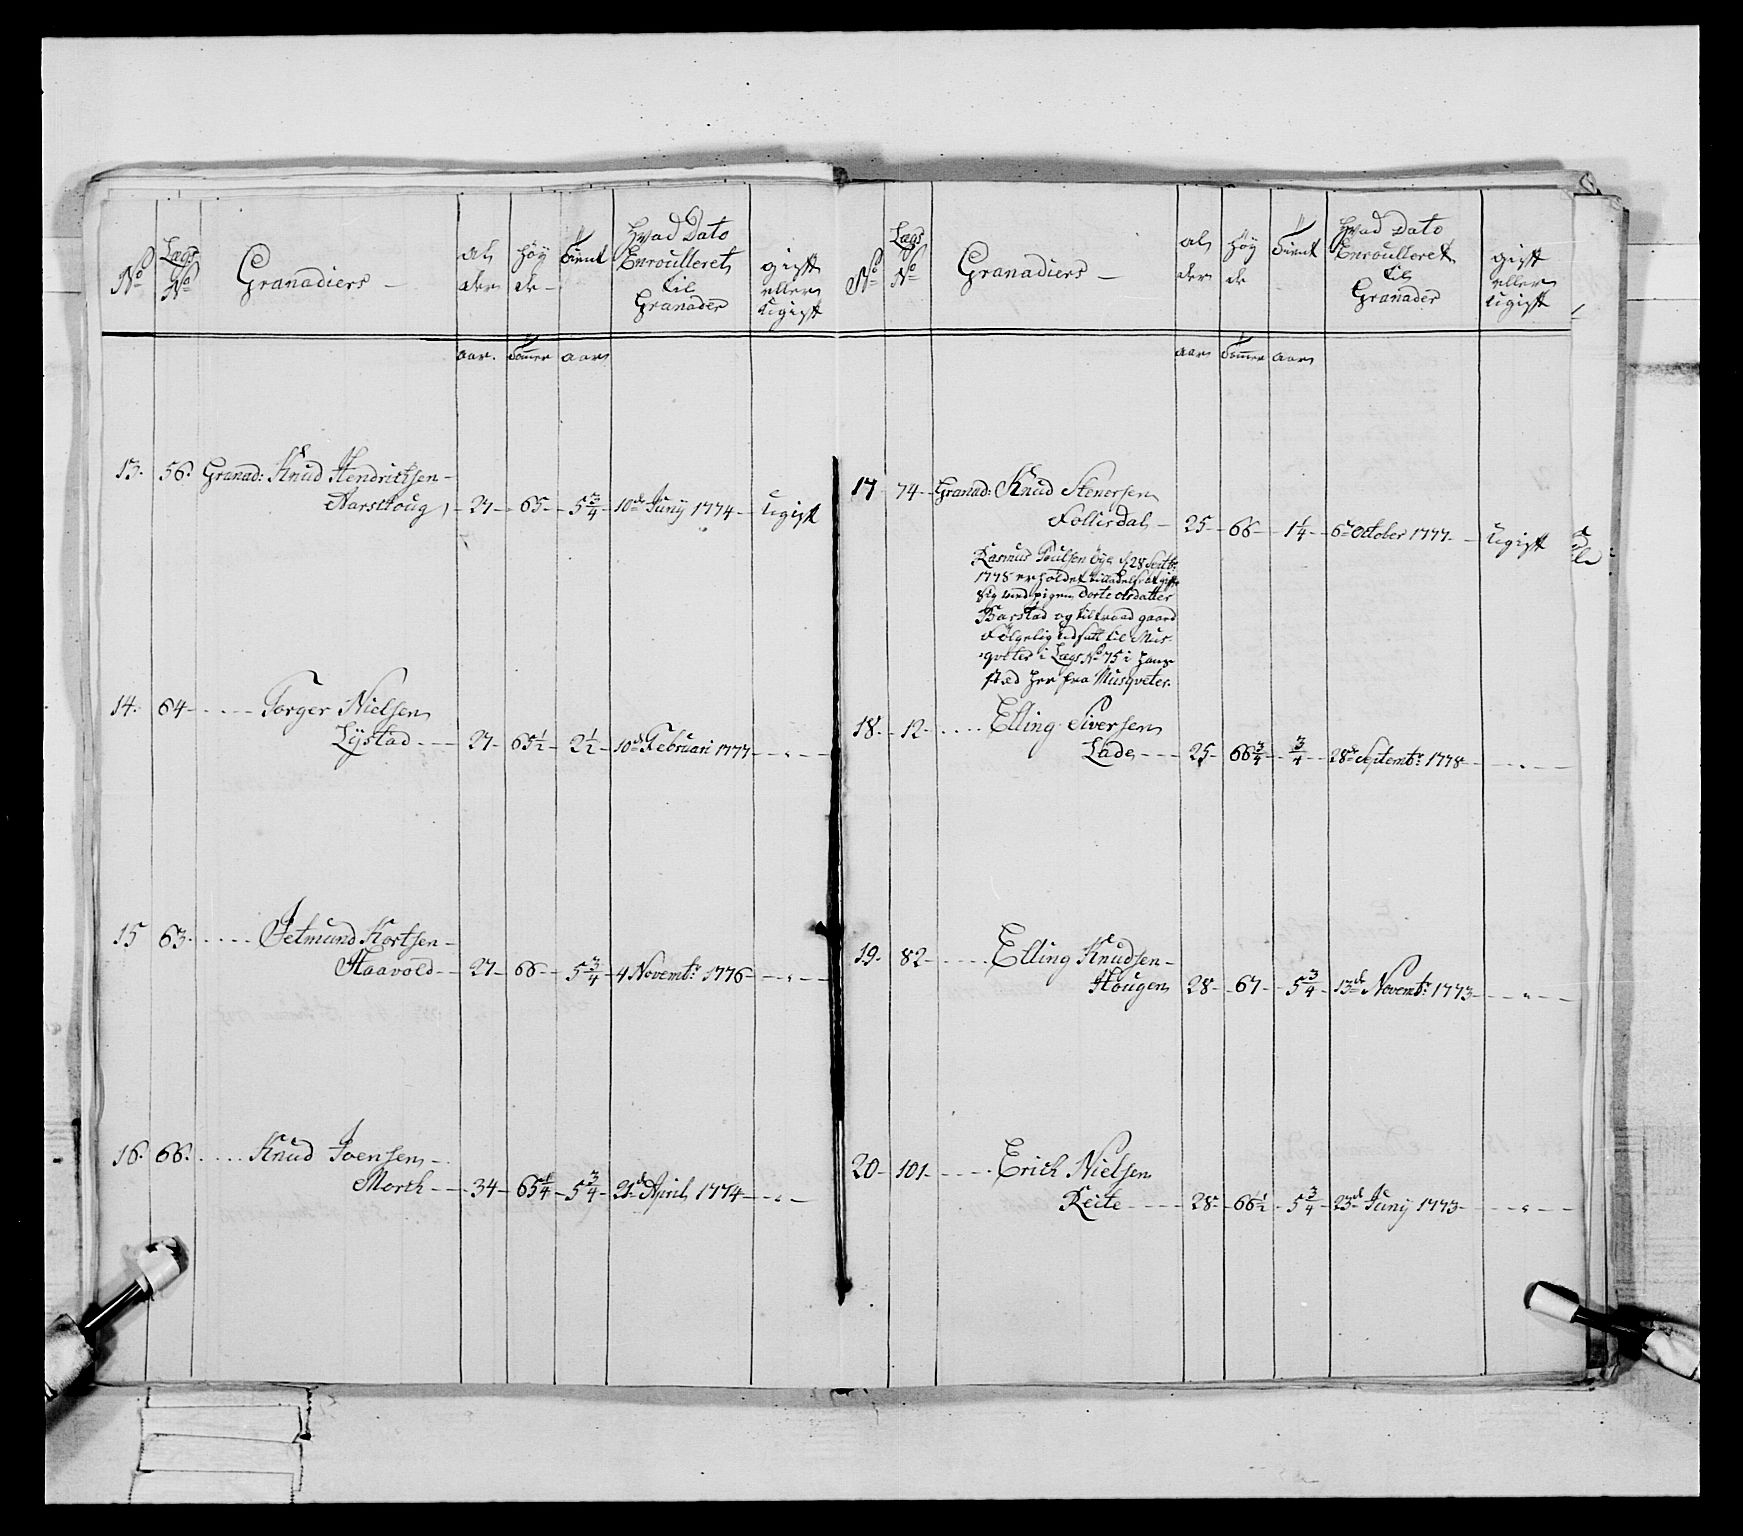 No
Lægs No
Granadiers
Al der
Høy de
Tient
Hvad Dato Enroulleret til Granader
gift eller Ugift
aar. Tommer aar
13. 56. Granad: Knud Hendrichsen
Aarsthoug 27 65 5 3/4 10de Juny 1774 Ugift
14. 64 Torger Nielsen
Lystad 27 65 1/2 2 1/2 10de Februari 1777 "
15 63 Jetmund Kortsen
Haavold 27 66 5 3/4 4 Novembr 1776 "
16. 66. Knud Joensen
Mork 34 65 1/4 5 3/4 21de April 1774 "
No
Lægs No
Granadiers
Al der
Høy de
Tient
Hvad Dato Enroulleret til Granader
gift eller Ugift
aar Tommer aar
17 74 Granad: Knud Stenersen
Follisdal 25 66 1 1/4 6te October 1777 Ugift
Rasmus Poulsen Øye d 28 Septbr
1778 erholdet tilladelse at gifte
sig med pigen Dorte Olsdatter
Barstad og tiltraad gaard
Følgelig udsatt til Mus-
qveter i Lægs No 75 i hans
sted her fra Musqveter.
18. 12 Elling Siversen
Lade 25 66 3/4 3/4 28de Septembr 1778 "
19. 82 Elling Knudsen
Hougen 28 67 5 3/4 13de Novembr 1773 "
20 101 Erich Nielsen
Reite 28 66 1/2 5 3/4 23de Juny 1773 "